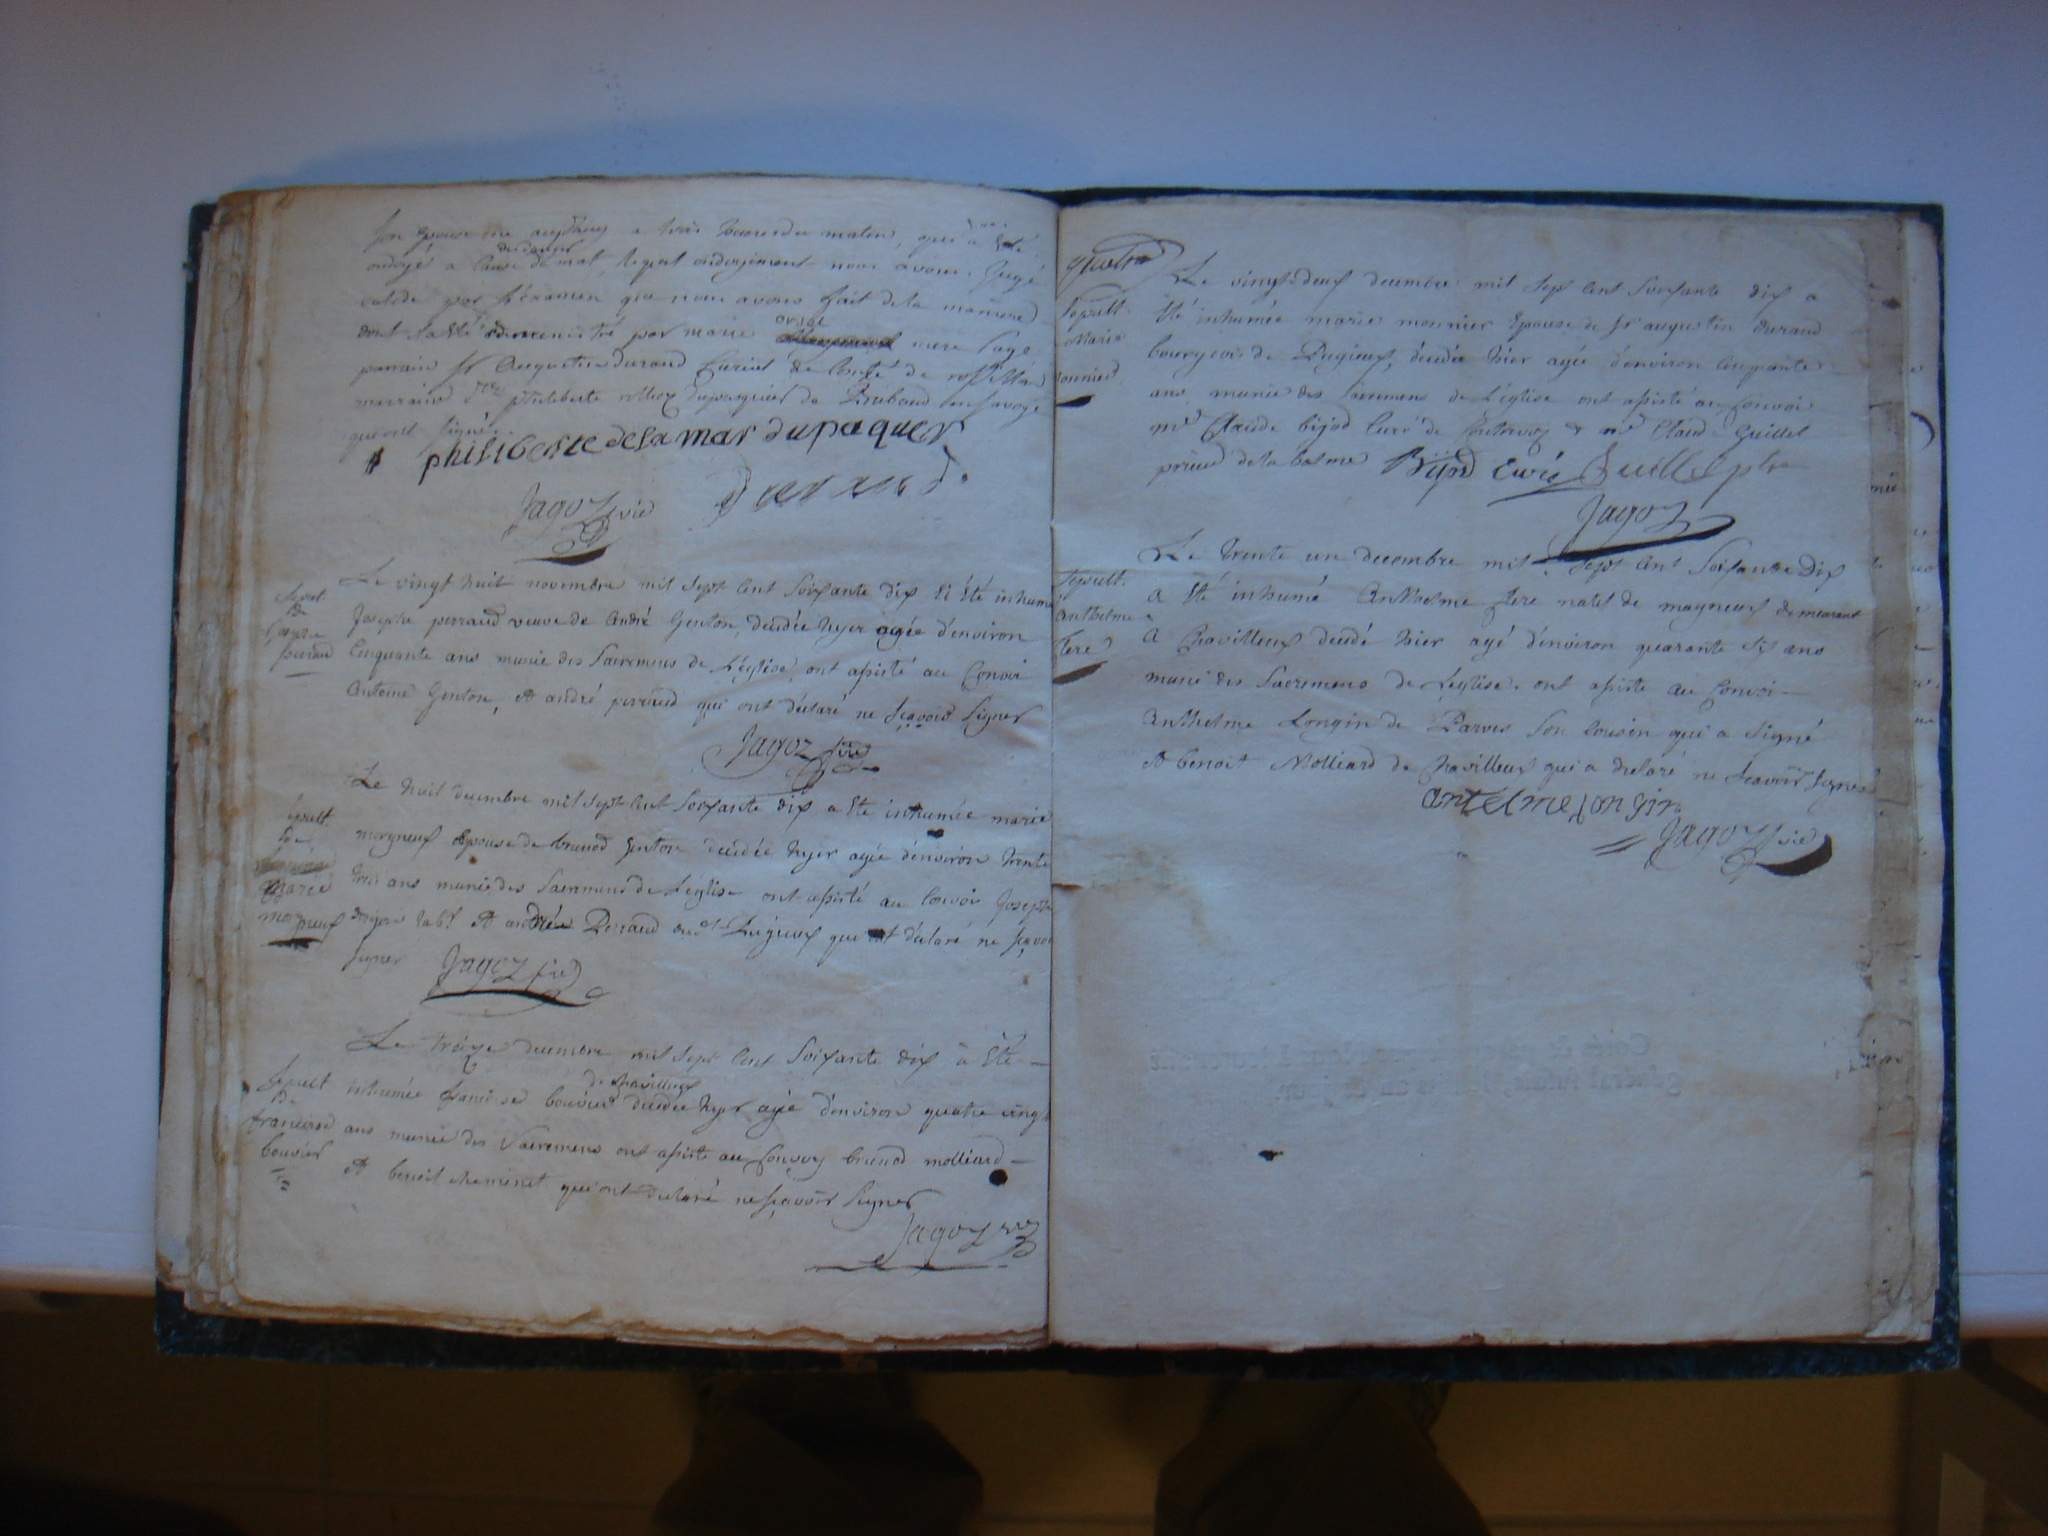 son Epouse née aujd'huy a trois heures du matin, qui a Eté
ondoyé a Cause du danger de mort, lequel ondoyement nous avons Jugé
valide par L'examen que nous avons fait de la maniere
dont Il a Eté administré par marie mere sage
parrain Sr Augustin durand Curial de Comté de
marraine philiberte dupasquier de en savoye
qui ont signés
philiberte de la mar dupaquer
Jagoz vic durand
Sepult.
de
Josepte
perraud
Le vingt huit novembre mil Sept Cent Soixante dix a Eté inhumé
Josepte perraud veuve de André Genton, décédée hyer agée d'environ
Cinquante ans munie des Sacremens de L'église, ont assisté au Convoi
Antoine Genton, et andré perraud qui ont déclaré ne sçavoir signer
Jagoz vic
Sepult.
de
Marie
Le huit decembre mil sept Cent Soixante dix a Eté inhumée marie
moigneuf Epouse de brunod Genton décédée hyer agée d'environ trente
trois ans munie des Sacremens de L'église ont assisté au Convoi Josepte
labr. et andrée Perraud de Pugieux qui ont déclaré ne sçavoir
signer Jagoz vic
Sepult
de
francoise
bouvier
Le treize decembre mil Sept Cent Soixante dix a Eté
inhumée francoise bouvier de Chavilleux décédée hyer agée d'environ quatre vingt
ans munie des Sacremens ont assisté au Convoy brunod molliard
et benoit cheminet qui ont declaré ne sçavoir signer
Jagoz vic
quatre
Sepult.
Marie
monnier
Le vingt deux decembre mil Sept Cent Soixante dix a
Eté inhumée marie monnier Epouse de Sr augustin durand
bourgeois de Pugieux, décédée hier agée d'environ Cinquante
ans munie des Sacremens de L'église ont assisté au Convoi
mre Claude bijod Curé de Contrevoz & mre Claude Guillet
prieur de la balme Bijod Curé Guillet ptre
Jagoz
Sepult.
Anthelme
fere
Le trente un decembre mil Sept Cent Soixante Dix
a Eté inhumé Anthelme fere natif de magneux demeurant
a Chavilleux decédé hier agé d'environ quarante six ans
muni des Sacremens de L'église. ont assisté au Convoi
Anthelme Longin de Parves son Cousin qui a signé
et benoit Molliard de Chavilleux qui a declaré ne sçavoir signer
antelme longin
Jagoz vic